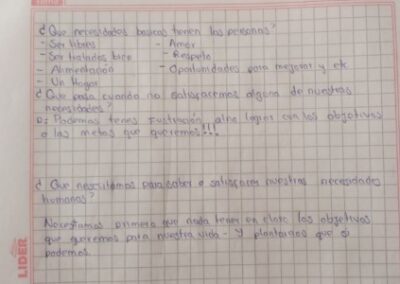 ¿Que necesidades basicas tienen las personas?
- Ser libres - Amor
- Ser tratados bien - Respeto
- Alimentación - Oportunidades para mejorar y etc
- Un Hogar
¿Que pasa cuando no satisfacemos alguna de nuestras
necesidades?
Podemos tener frustración, al no lograr con los objetivos
o las metas que queremos!!!
¿Que necesitamos para saber o satisfacer nuestras necesidades
humanas?
Necesitamos primero que nada tener en claro los objetivos
que queremos para nuestra vida - Y plantearnos que si
podemos.
LIDER